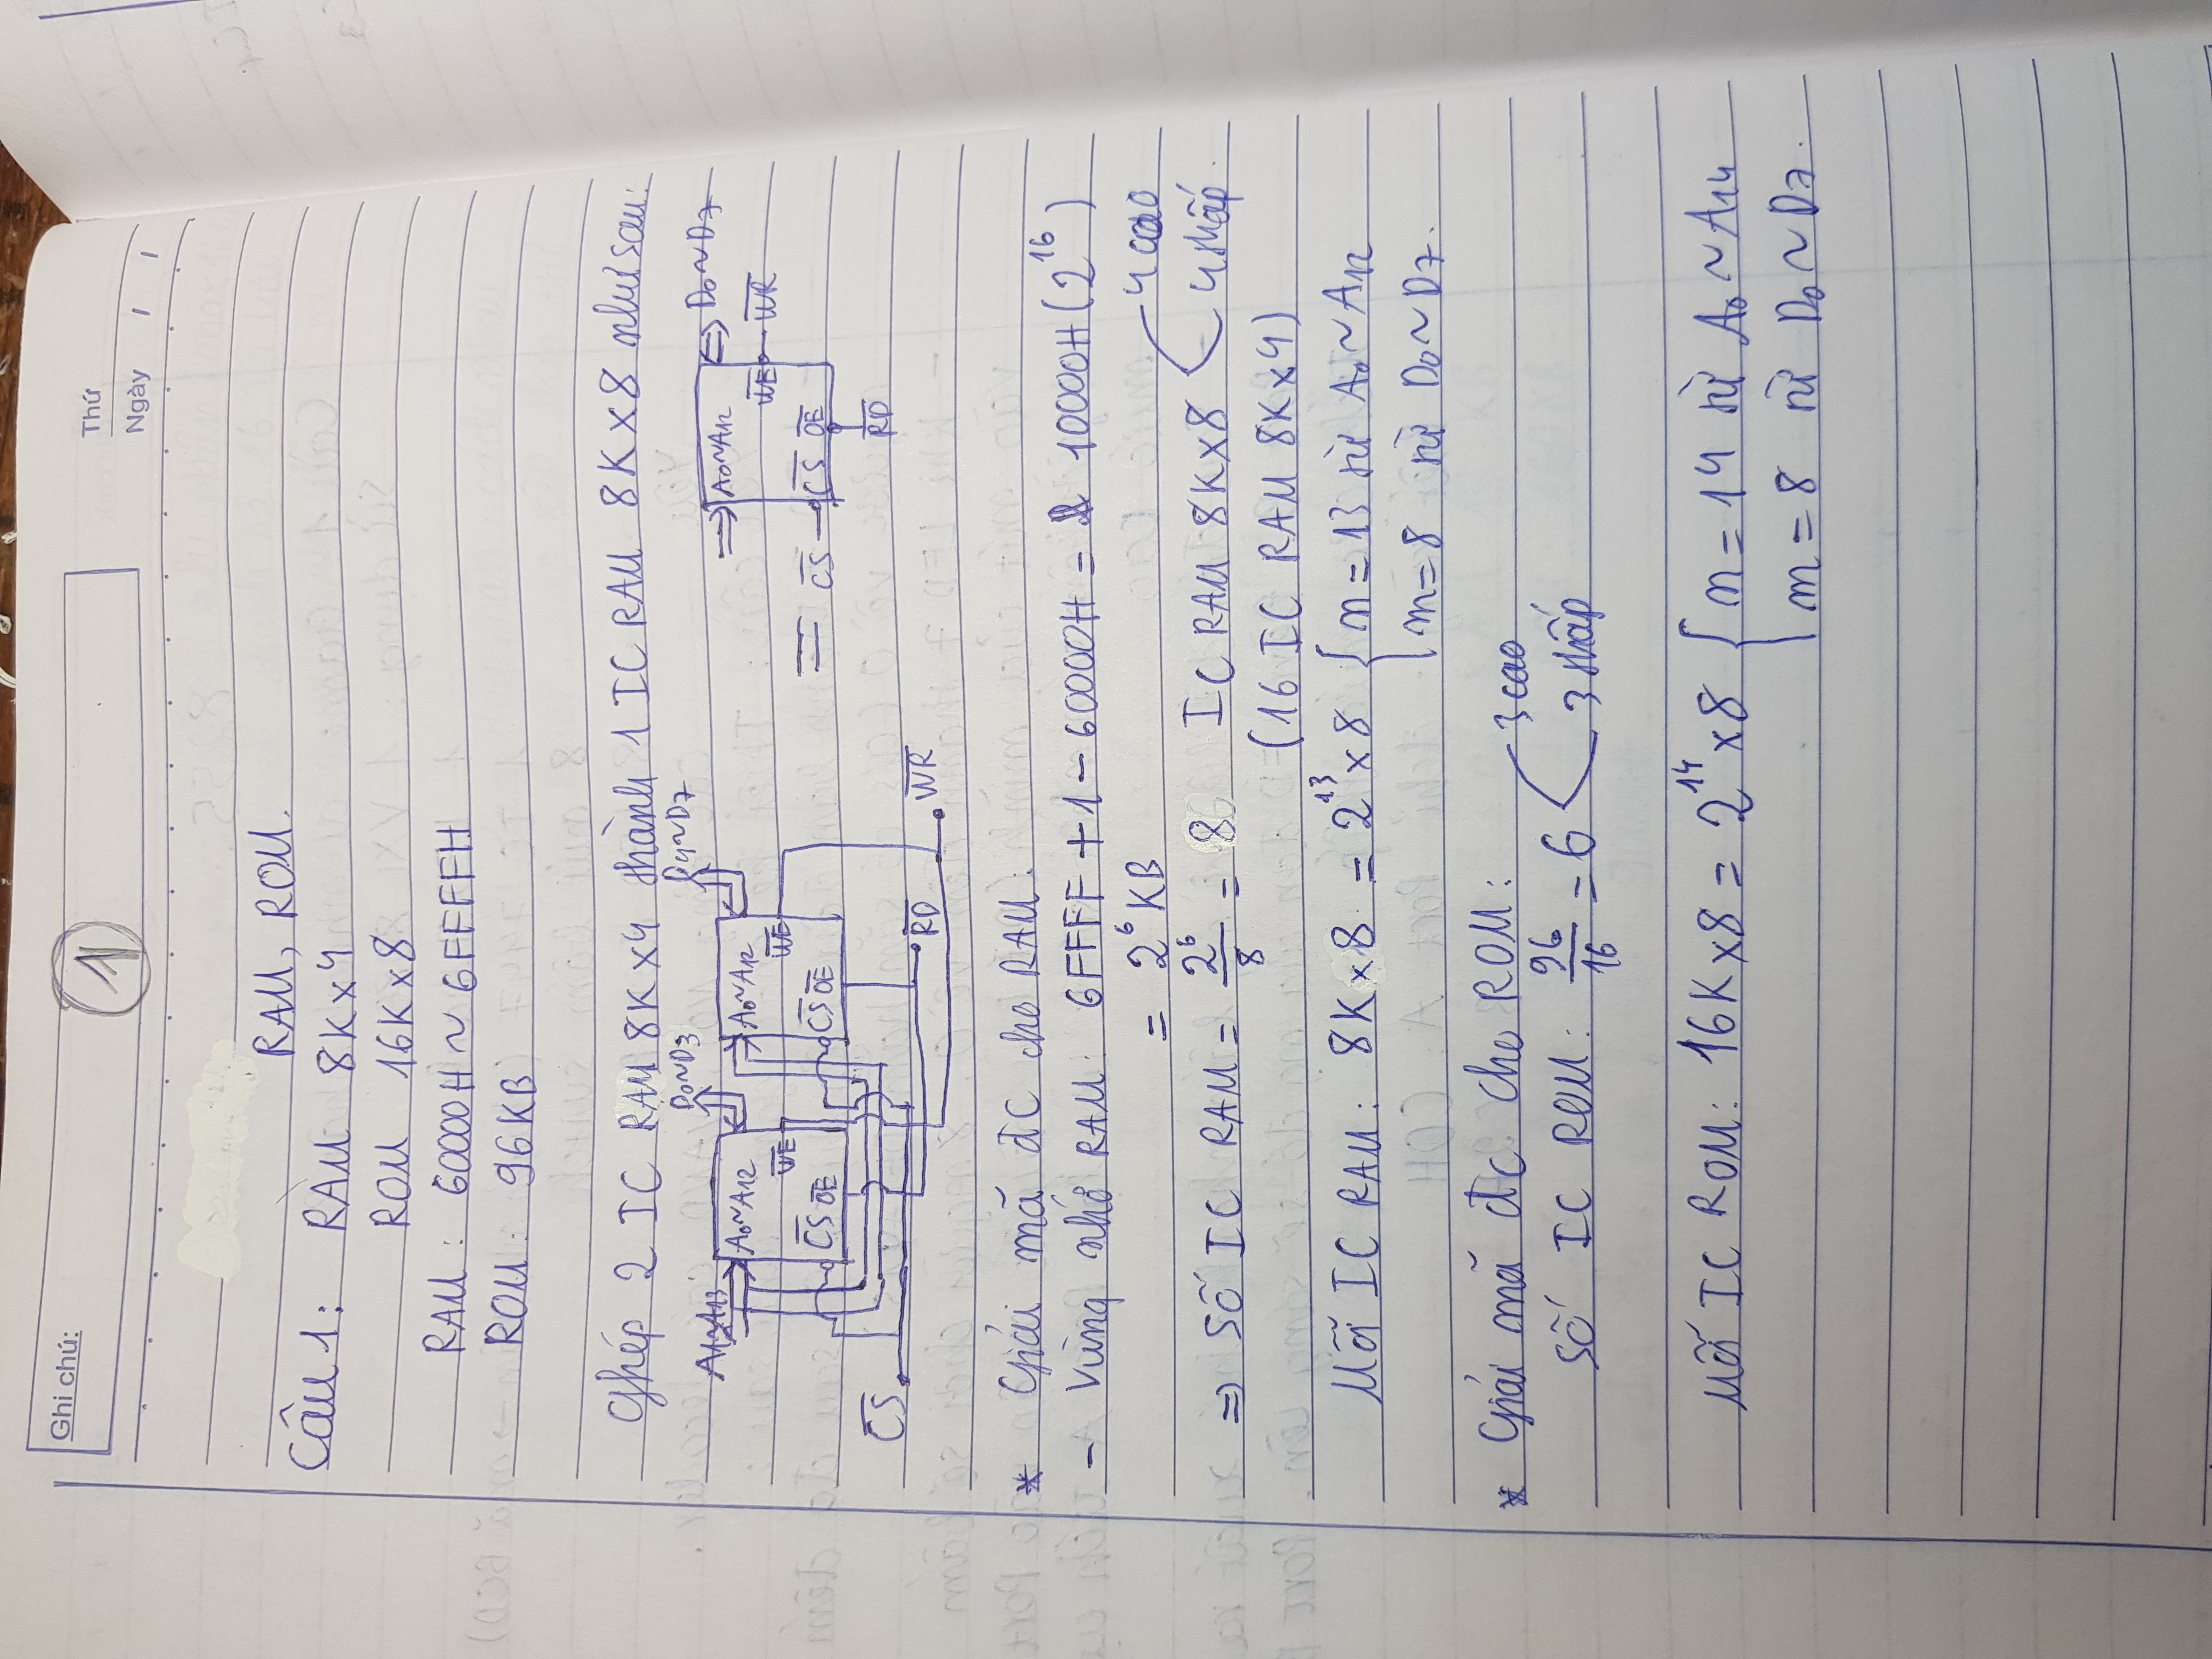 Ghi chú:
1
Thứ
Ngày / /
RAM, ROM.
Câu 1: RAM 8K x 4
ROM 16K x 8
RAM : 60000H ~ 6FFFFH
ROM : 96KB
Ghép 2 IC RAM 8K x 4 thành 1 IC RAM 8K x 8 như sau:
D0~D3 D4~D7
A1~A13 A0~A12 A0~A12 A0~A12 D0~D7
W̅E̅ W̅E̅ W̅E̅ W̅R̅
C̅S̅ O̅E̅ C̅S̅ O̅E̅ = C̅S̅ C̅S̅ O̅E̅
C̅S̅ R̅D̅ W̅R̅ R̅D̅
* Giải mã đc cho RAM:
- Vùng nhớ RAM: 6FFFF + 1 - 60000H = 10000H (2¹⁶)
= 2⁶ KB
4 cao
⇒ Số IC RAM = 2⁶/8 = 8 IC RAM 8K x 8 4 thấp.
(16 IC RAM 8K x 4)
Mỗi IC RAM: 8K x 8 = 2¹³ x 8 { n = 13 từ A0 ~ A12
m = 8 từ D0 ~ D7.
* Giải mã đc cho ROM:
3 cao
Số IC ROM: 96/16 = 6 3 thấp
Mỗi IC ROM: 16K x 8 = 2¹⁴ x 8 { n = 14 từ A0 ~ A14
m = 8 từ D0 ~ D7.